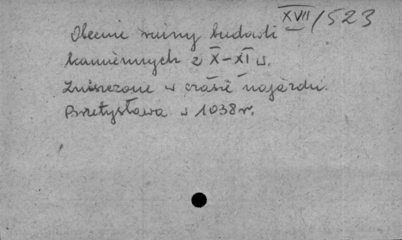 XVII/523
Obecnie ruiny budowli
kamiennych z X-XI w.
Zniszczone w czasie najazdu
Brzetysława w 1038 r.